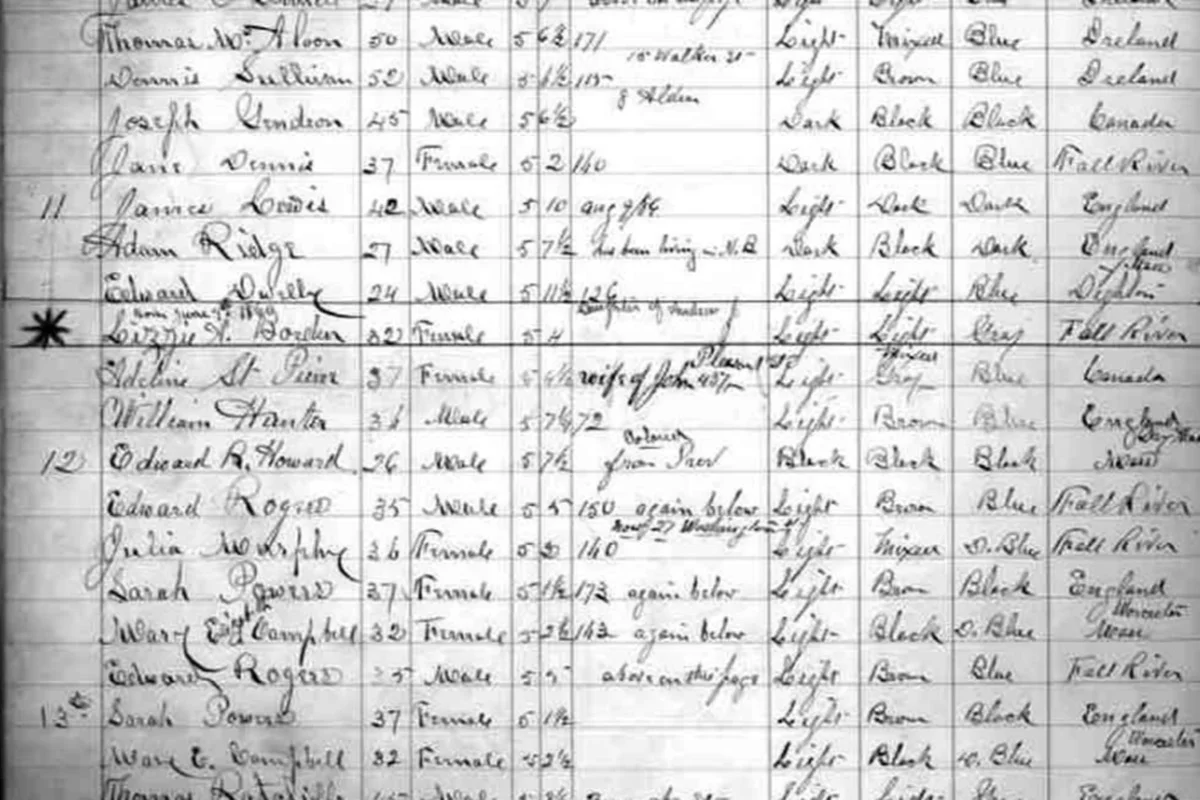 Thomas 50 Male 5 6½ 171 Light Mixed Blue Ireland
15 Walker St
Dennis Sullivan 52 Male 5 1½ 115 Light Brown Blue Ireland
8 Alden
Joseph Gendron 45 Male 5 6½ Dark Black Black Canada
Jane Dennis 37 Female 5 2 140 Dark Black Blue Fall River
11 James Lewis 42 Male 5 10 Light Dark Dark England
Adam Ridge 27 Male 5 7½ has been living in N.B Dark Black Dark England
Mass
Edward 24 Male 5 11½ Light Light Blue Dighton
Born June 1860 Daughter of Andrew J
Lizzie A. Borden 32 Female 5 4 Light Light Gray Fall River
Pleasant St Mixed
Adeline St Pierre 37 Female 5 4½ wife of John Light Gray Blue Canada
William Hunter 36 Male 5 7½ 72 Light Brown Blue England
Colored
12 Edward R. Howard 26 Male 5 7½ from Prov Black Black Black Mass
Edward Rogers 35 Male 5 5 150 again below Light Brown Blue Fall River
now 27 Washington St
Julia Murphy 36 Female 5 140 Light Mixed D. Blue Fall River
Sarah Powers 37 Female 5 1½ 173 again below Light Brown Black England
Worcester
Mary Elizabeth Campbell 32 Female 5 2½ 143 again below Light Black D. Blue Mass
Edward Rogers 35 Male 5 5 above on this page Light Brown Blue Fall River
13 Sarah Powers 37 Female 5 1½ Light Brown Black England
Worcester
Mary E. Campbell 32 Female 5 2½ Light Black D. Blue Mass
Thomas